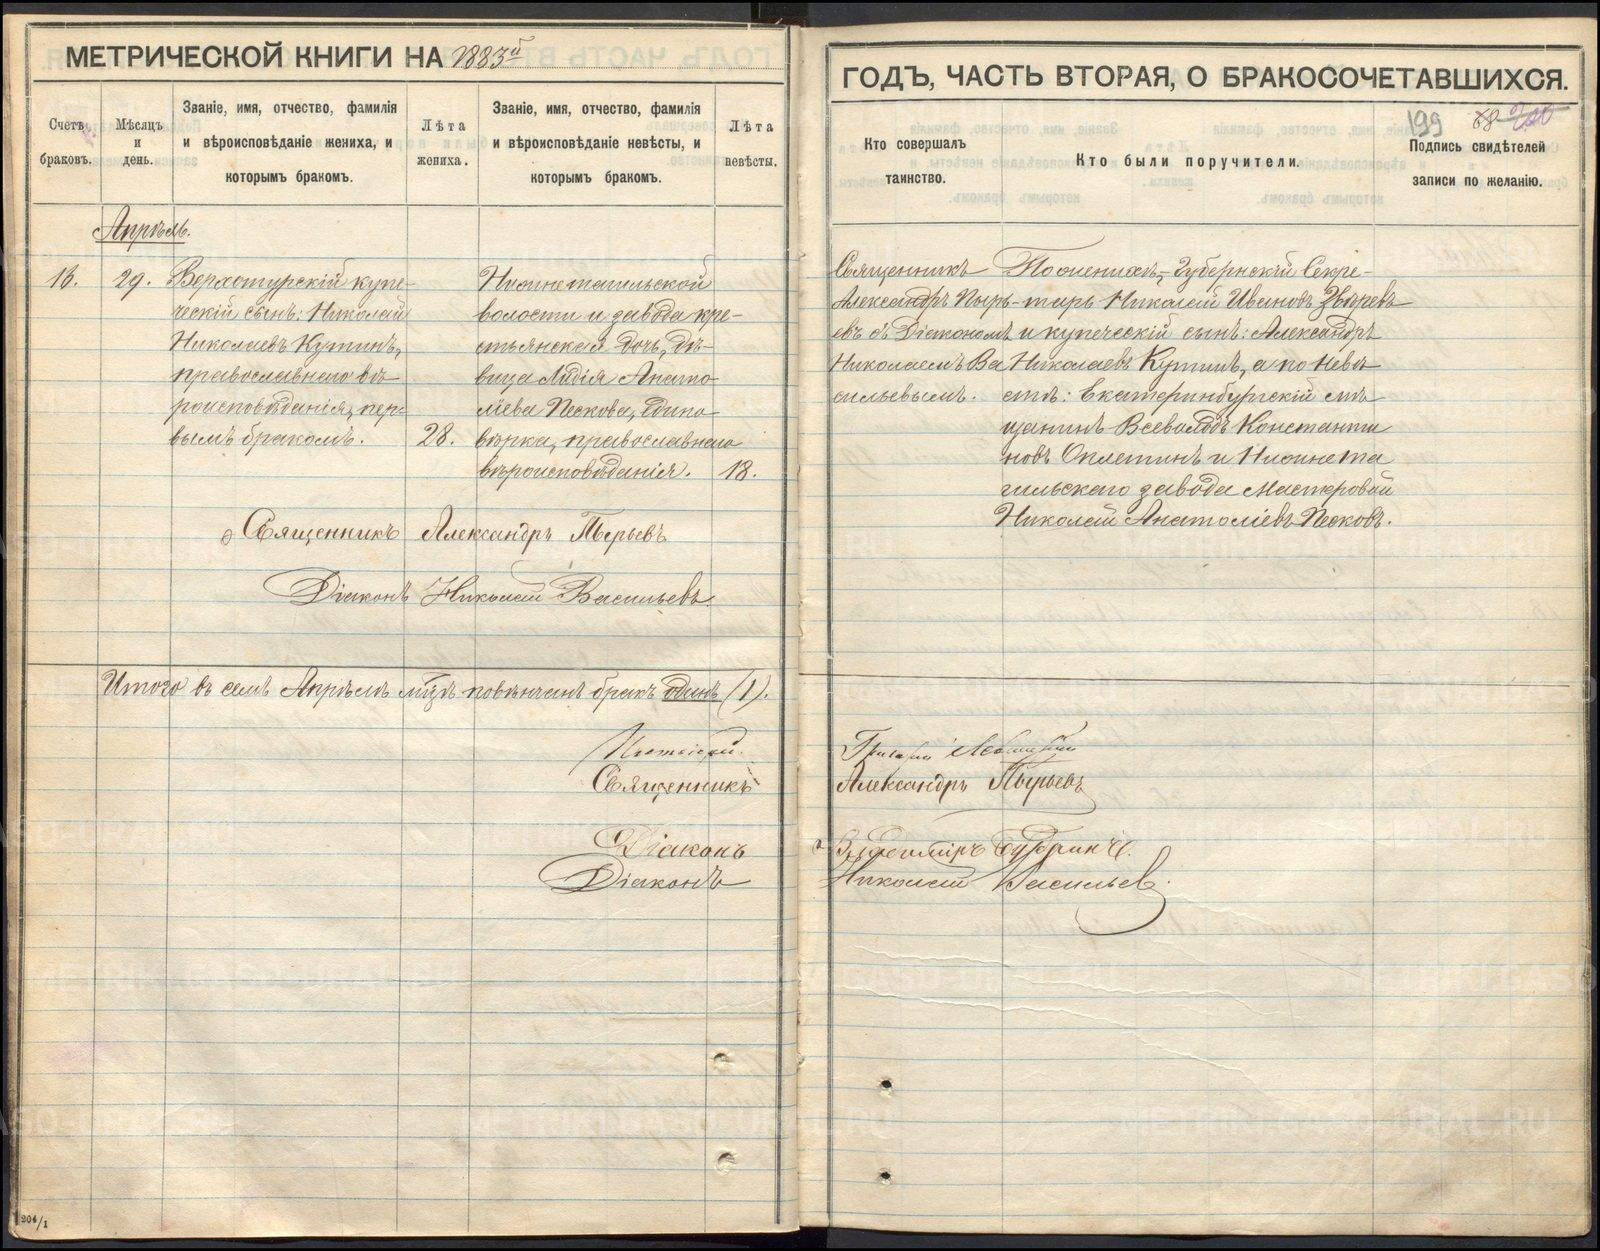 МЕТРИЧЕСКОЙ КНИГИ НА 1883й
Счетъ браковъ.
Мѣсяцъ и день.
Званіе, имя, отчество, фамилія
и вѣроисповѣданіе жениха, и
которымъ бракомъ.
Лѣта
жениха.
Званіе, имя, отчество, фамилія
и вѣроисповѣданіе невѣсты, и
которымъ бракомъ.
Лѣта
невѣсты.
Апрѣль.
16.
29.
Верхотурскій купе-
ческій сынъ: Николай
Николаевъ Кутинъ,
православнаго вѣ-
роисповѣданія, пер-
вымъ бракомъ.
28.
Нижнетагильской
волости и завода кре-
стьянская дочь, дѣ-
вица Лидія Анато-
ліева Пескова, едино-
вѣрка, православнаго
вѣроисповѣданія.
18.
Священникъ Александръ Пырьевъ
Діаконъ Николай Васильевъ.
Итого въ семъ Апрѣлѣ мцѣ повѣнчанъ бракъ одинъ (1).
Священникъ
Діаконъ
Діаконъ
ГОДЪ, ЧАСТЬ ВТОРАЯ, О БРАКОСОЧЕТАВШИХСЯ.
199 68 200
Кто совершалъ
таинство.
Кто были поручители.
Подпись свидѣтелей
записи по желанію.
Священникъ
Александръ Пырь-
евъ съ Діакономъ
Николаемъ Ва
сильевымъ.
По женихѣ: Губернскій Секре-
тарь Николай Ивановъ Звѣревъ
и купеческій сынъ: Александръ
Николаевъ Кутинъ, а по Невѣ
стѣ: Екатеринбургскій мѣ
щанинъ Всеволодъ Константи
новъ Оплетинъ и Нижнета
гильскаго завода Мастеровой
Николай Анатоліевъ Песковъ.
Александръ Пырьевъ
Николай Васильев.
204/1